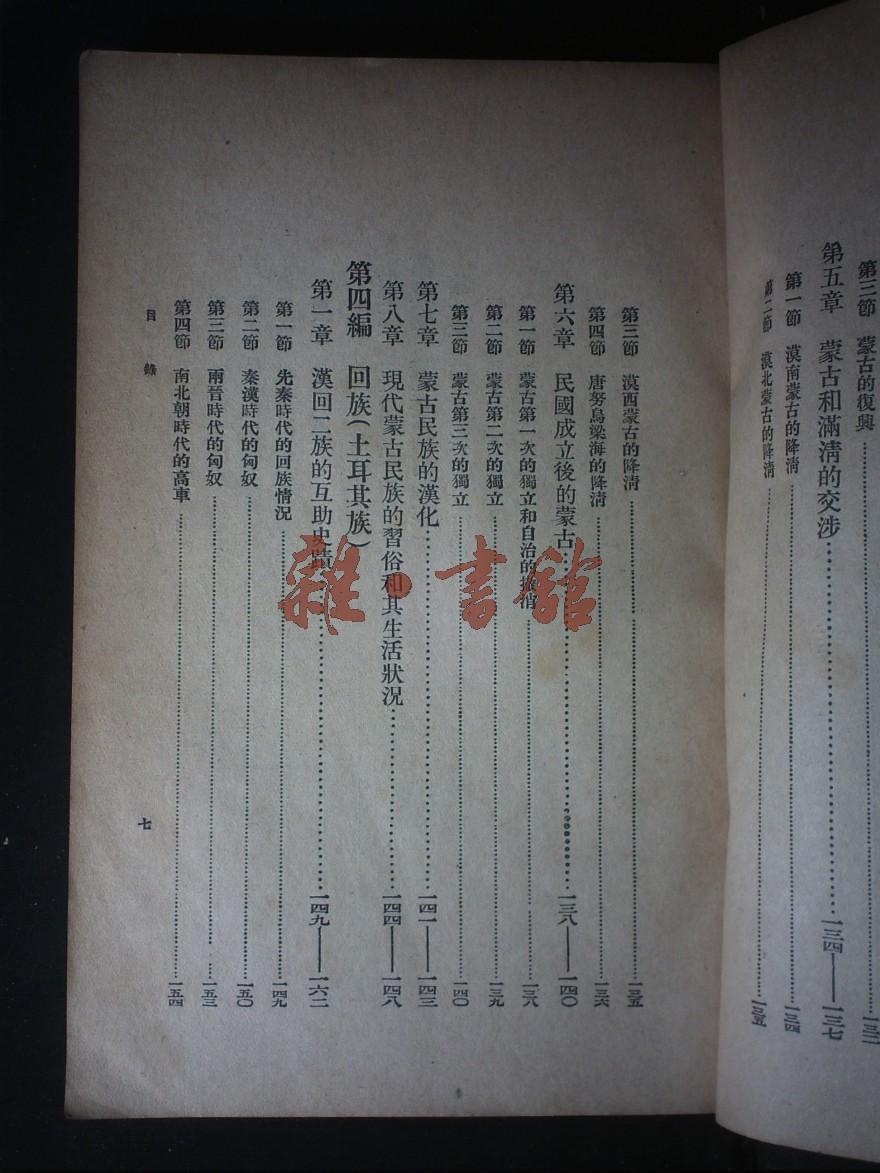 第三節 蒙古的復興……一三二
第五章 蒙古和滿清的交涉……一三四——一三七
第一節 漠南蒙古的降清……一三四
第二節 漠北蒙古的降清……一三五
第三節 漠西蒙古的降清……一三五
第四節 唐努烏梁海的降清……一三六
第六章 民國成立後的蒙古……一三八——一四〇
第一節 蒙古第一次的獨立和自治的撤消……一三八
第二節 蒙古第二次的獨立……一三九
第三節 蒙古第三次的獨立……一四〇
第七章 蒙古民族的漢化……一四一——一四三
第八章 現代蒙古民族的習俗和其生活狀況……一四四——一四八
第四編 回族（土耳其族）
第一章 漢回二族的互助史蹟……一四九——一六二
第一節 先秦時代的回族情況……一四九
第二節 秦漢時代的匈奴……一五〇
第三節 兩晉時代的匈奴……一五三
第四節 南北朝時代的高車……一五四
目錄 七
雜·書館